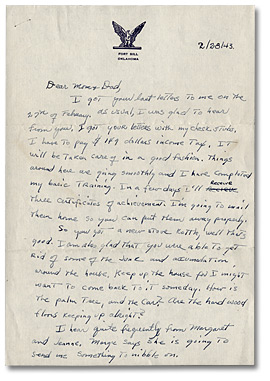 FORT SILL
OKLAHOMA
2/28/43.
Dear Mom & Dad,
I got your last letter to me on the
27th of February. as usual, I was glad to hear
from you. I got your letters with my check stubs.
I have to pay $189 dollars income tax. It
will be taken care of in a good fashion. Things
around here are going smoothly and I have completed
my basic Training. In a few days I'll receive
three certificates of achievement. I'm going to mail
them home so you can put them away properly.
So you got a new stove Kath, well that's
good. I am also glad that you were able to get
rid of some of the junk and accumulation
around the house. Keep up the house for I might
want to come back to it someday. How is
the palm Tree, and the Car? Are the hard wood
floors keeping up alright?
I hear quite frequently from Margaret
and Jeanne. Marge says she is going to
send me something to nibble on.